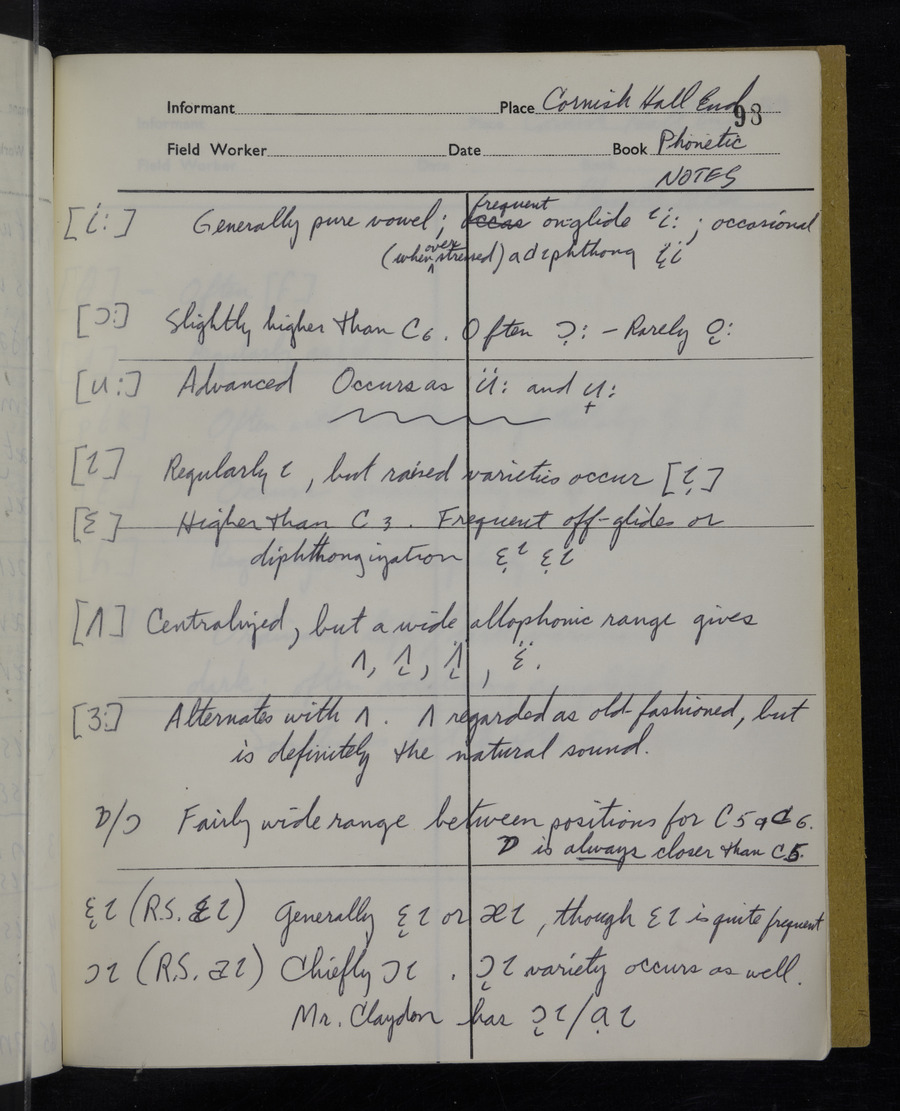 Informant Place Cornish Hall End
98
Field Worker Date Book Phonetic
NOTES
[i:] Generally pure vowel; frequent on-glide ɩi: ; occasional
(when over stressed) a diphthong ɛ̣i
[ɔ:] Slightly higher than C6. Often ɔ̣: – Rarely o̜:
[u:] Advanced Occurs as ü: and u̟:
[ɩ] Regularly ɩ, but raised varieties occur [ɩ̣]
[ɛ] Higher than C3. Frequent off-glides or
diphthongization ɛ̣ᶥ ɛ̣ɩ
[ʌ] Centralized, but a wide allophonic range gives
ʌ, ʌ̜, ʌ̜̈, ɛ̣̈.
[ɜ:] Alternates with ʌ. ʌ regarded as old-fashioned, but
is definitely the natural sound.
ɒ/ɔ Fairly wide range between positions for C5 a C6.
ɒ is always closer than C5.
ɛ̣ɩ (R.S. ɛɩ) Generally ɛ̣ɩ or æɩ, though ɛɩ is quite frequent
ɔɩ (R.S. aɩ) Chiefly ɔɩ. ɔ̜ɩ variety occurs as well.
Mr. Claydon has ɔ̜ɩ/ɑ̣ɩ